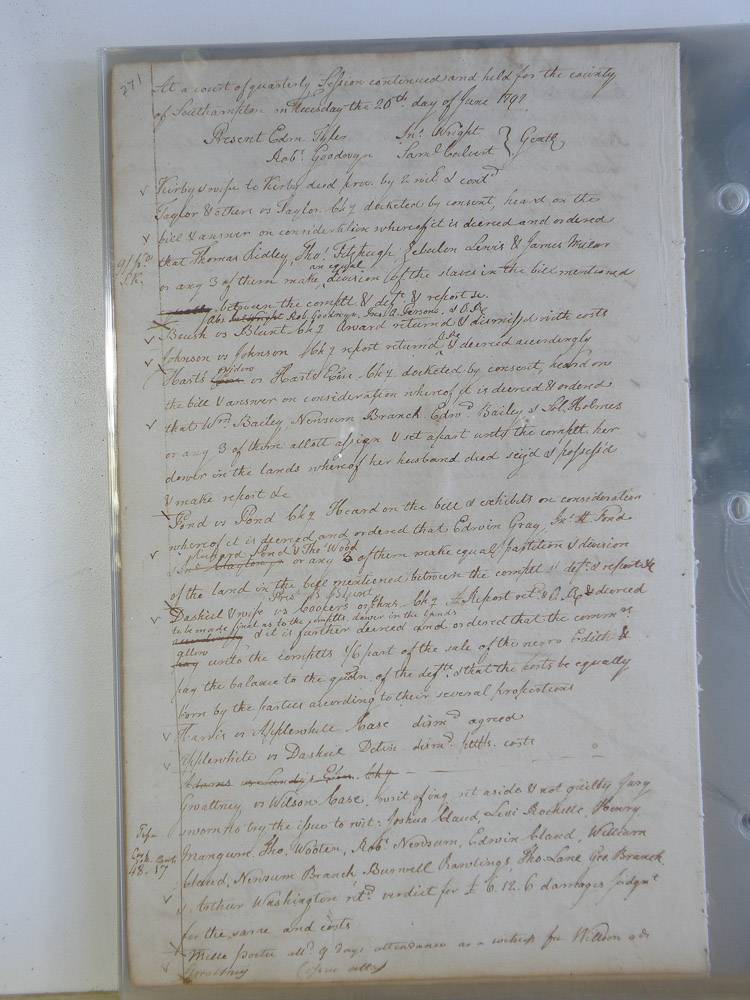 271
At a court of quarterly Session continued and held for the county
of Southampton on Tuesday the 20th day of June 1791
Present Edm Tyler Jno. Wright
Robt. Goodwyn Saml Calvert } Gentn
Kirby & wife to Kirby deed prov. by 2 wit & contd
Taylor & others vs Taylor Chy docketed by consent, heard on the
bill & answer on consideration whereof it is decreed and ordered
that Thomas Ridley, Thos. Fitzhugh Zebulon Lewis & James Millar
an equal
or any 3 of them make division of the slaves in the bill mentioned
between the complt & deft. & report &c.
Rob. Goodwyn, Jno.
Beush vs Blunt Chy Award returnd & dismissd with costs
Johnson vs Johnson Chy report returnd & decreed accordingly
widow
Harts vs Harts Exor Chy docketed by consent, heard on
the bill & answer on consideration whereof it is decreed & orderd
that Wm. Bailey, Newsum Branch Edwd. Bailey & Sol. Holmes
or any 3 of them allott assign & set apart unto the complt. her
dower in the lands whereof her husband died seizd & possessd
& make report &c
Pond vs Pond Chy Heard on the bill & exhibits on consideration
whereof it is decreed and ordered that Edwin Gray, Jno. Pond
Richard Pond & Thos. Wood
or any of them make equal partition & division
of the land in the bill mentioned between the complt & deft. & report &c
Dashiel & wife vs Coopers orphns Chy Report retd & decreed
to be made final as to the complts. dower in the lands
& it is further decreed and ordered that the commrs
allow
unto the complts 1/6 part of the sale of the negro Edith &
pay the balance to the gudn. of the defts. & that the costs be equally
born by the parties according to their several proportions
Harris vs Applewhite Case dismd agreed
Applewhite vs Dashiel Detin dismd. costs
Gwaltney vs Wilson Case, writ of inq set aside & not guilty Jury
sworn to try the issue to wit: Joshua Claud, Levi Rochelle, Henry
Mangum, Tho. Wooten, Robt Newsum, Edwin Claud, William
Claud, Newsum Branch, Burwell Rawlings, Tho. Lane Geo Branch
& Arthur Washington retd. verdict for £ 6.12.6 damages judgmt
for the same and costs
48. 17
Mills Porter alld. 9 days attendance as a witness for Willson ads
Gwaltney